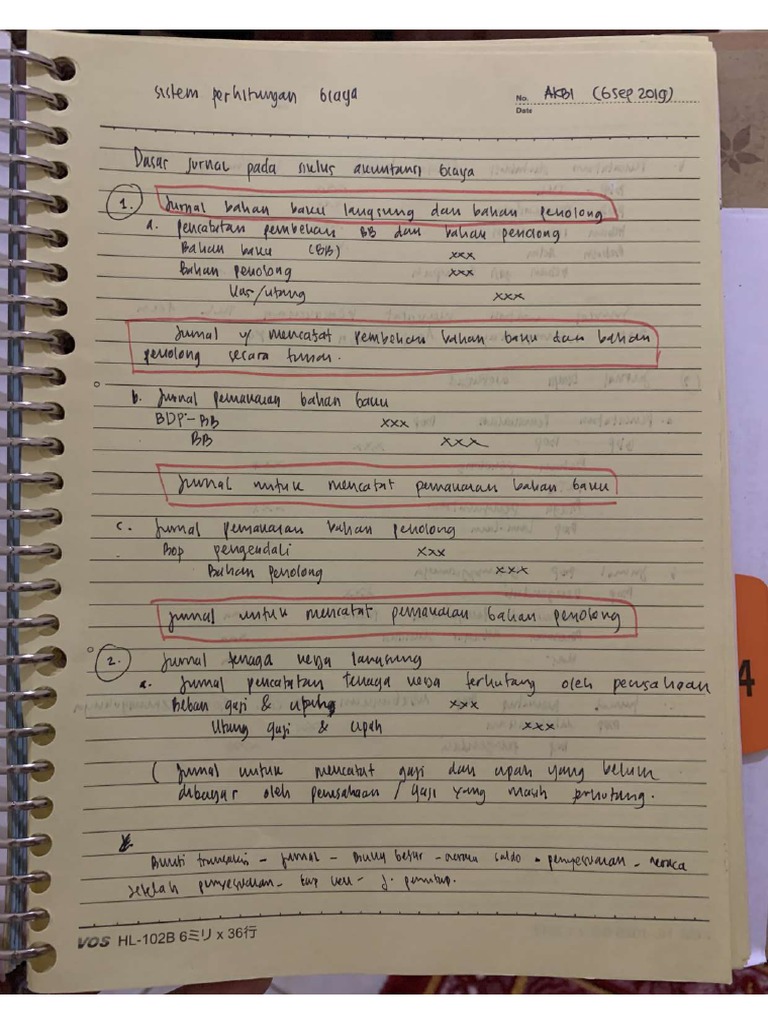 sistem perhitungan biaya
No. AKBI (6 Sep 2019)
Date
Dasar jurnal pada siklus akuntansi biaya
1. Jurnal bahan baku langsung dan bahan penolong
a. pencatatan pembelian BB dan bahan penolong
Bahan baku (BB) xxx
Bahan penolong xxx
Kas/utang xxx
Jurnal y/ mencatat pembelian bahan baku dan bahan
penolong secara tunai.
b. Jurnal pemakaian bahan baku
BDP-BB xxx
BB xxx
Jurnal untuk mencatat pemakaian bahan baku
c. Jurnal pemakaian bahan penolong
Bop pengendali xxx
Bahan penolong xxx
Jurnal untuk mencatat pemakaian bahan penolong
2. Jurnal tenaga kerja langsung
a. Jurnal pencatatan tenaga kerja terhutang oleh perusahaan
Beban gaji & upah xxx
Utang gaji & upah xxx
( Jurnal untuk mencatat gaji dan upah yang belum
dibayar oleh perusahaan / Gaji yang masih terhutang.
Bukti transaksi - jurnal - Buku besar - neraca saldo - penyesuaian - neraca
setelah penyesuaian - lap keu - J. penutup.
VOS HL-102B 6ミリ x 36行
4